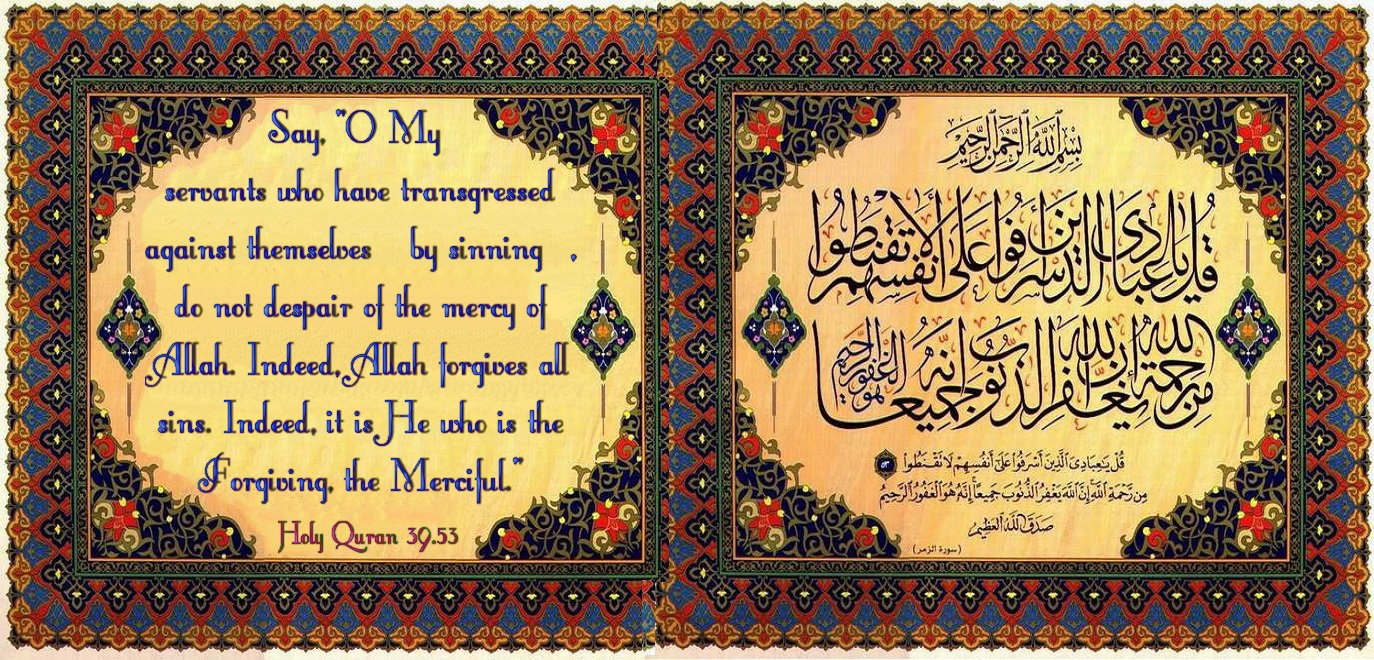 Say, "O My
servants who have transgressed
against themselves by sinning ,
do not despair of the mercy of
Allah. Indeed, Allah forgives all
sins. Indeed, it is He who is the
Forgiving, the Merciful."
Holy Quran 39.53
بِسْمِ اللَّهِ الرَّحْمَٰنِ الرَّحِيمِ
قُلْ يَا عِبَادِيَ الَّذِينَ أَسْرَفُوا عَلَىٰ أَنْفُسِهِمْ لَا تَقْنَطُوا
مِنْ رَحْمَةِ اللَّهِ إِنَّ اللَّهَ يَغْفِرُ الذُّنُوبَ جَمِيعًا إِنَّهُ هُوَ الْغَفُورُ الرَّحِيمُ
قُلْ يَٰعِبَادِيَ الَّذِينَ أَسْرَفُوا عَلَىٰ أَنفُسِهِمْ لَا تَقْنَطُوا ٥٣
مِن رَّحْمَةِ اللَّهِ إِنَّ اللَّهَ يَغْفِرُ الذُّنُوبَ جَمِيعًا إِنَّهُ هُوَ الْغَفُورُ الرَّحِيمُ
صَدَقَ اللَّهُ الْعَظِيمُ
(سورة الزمر)